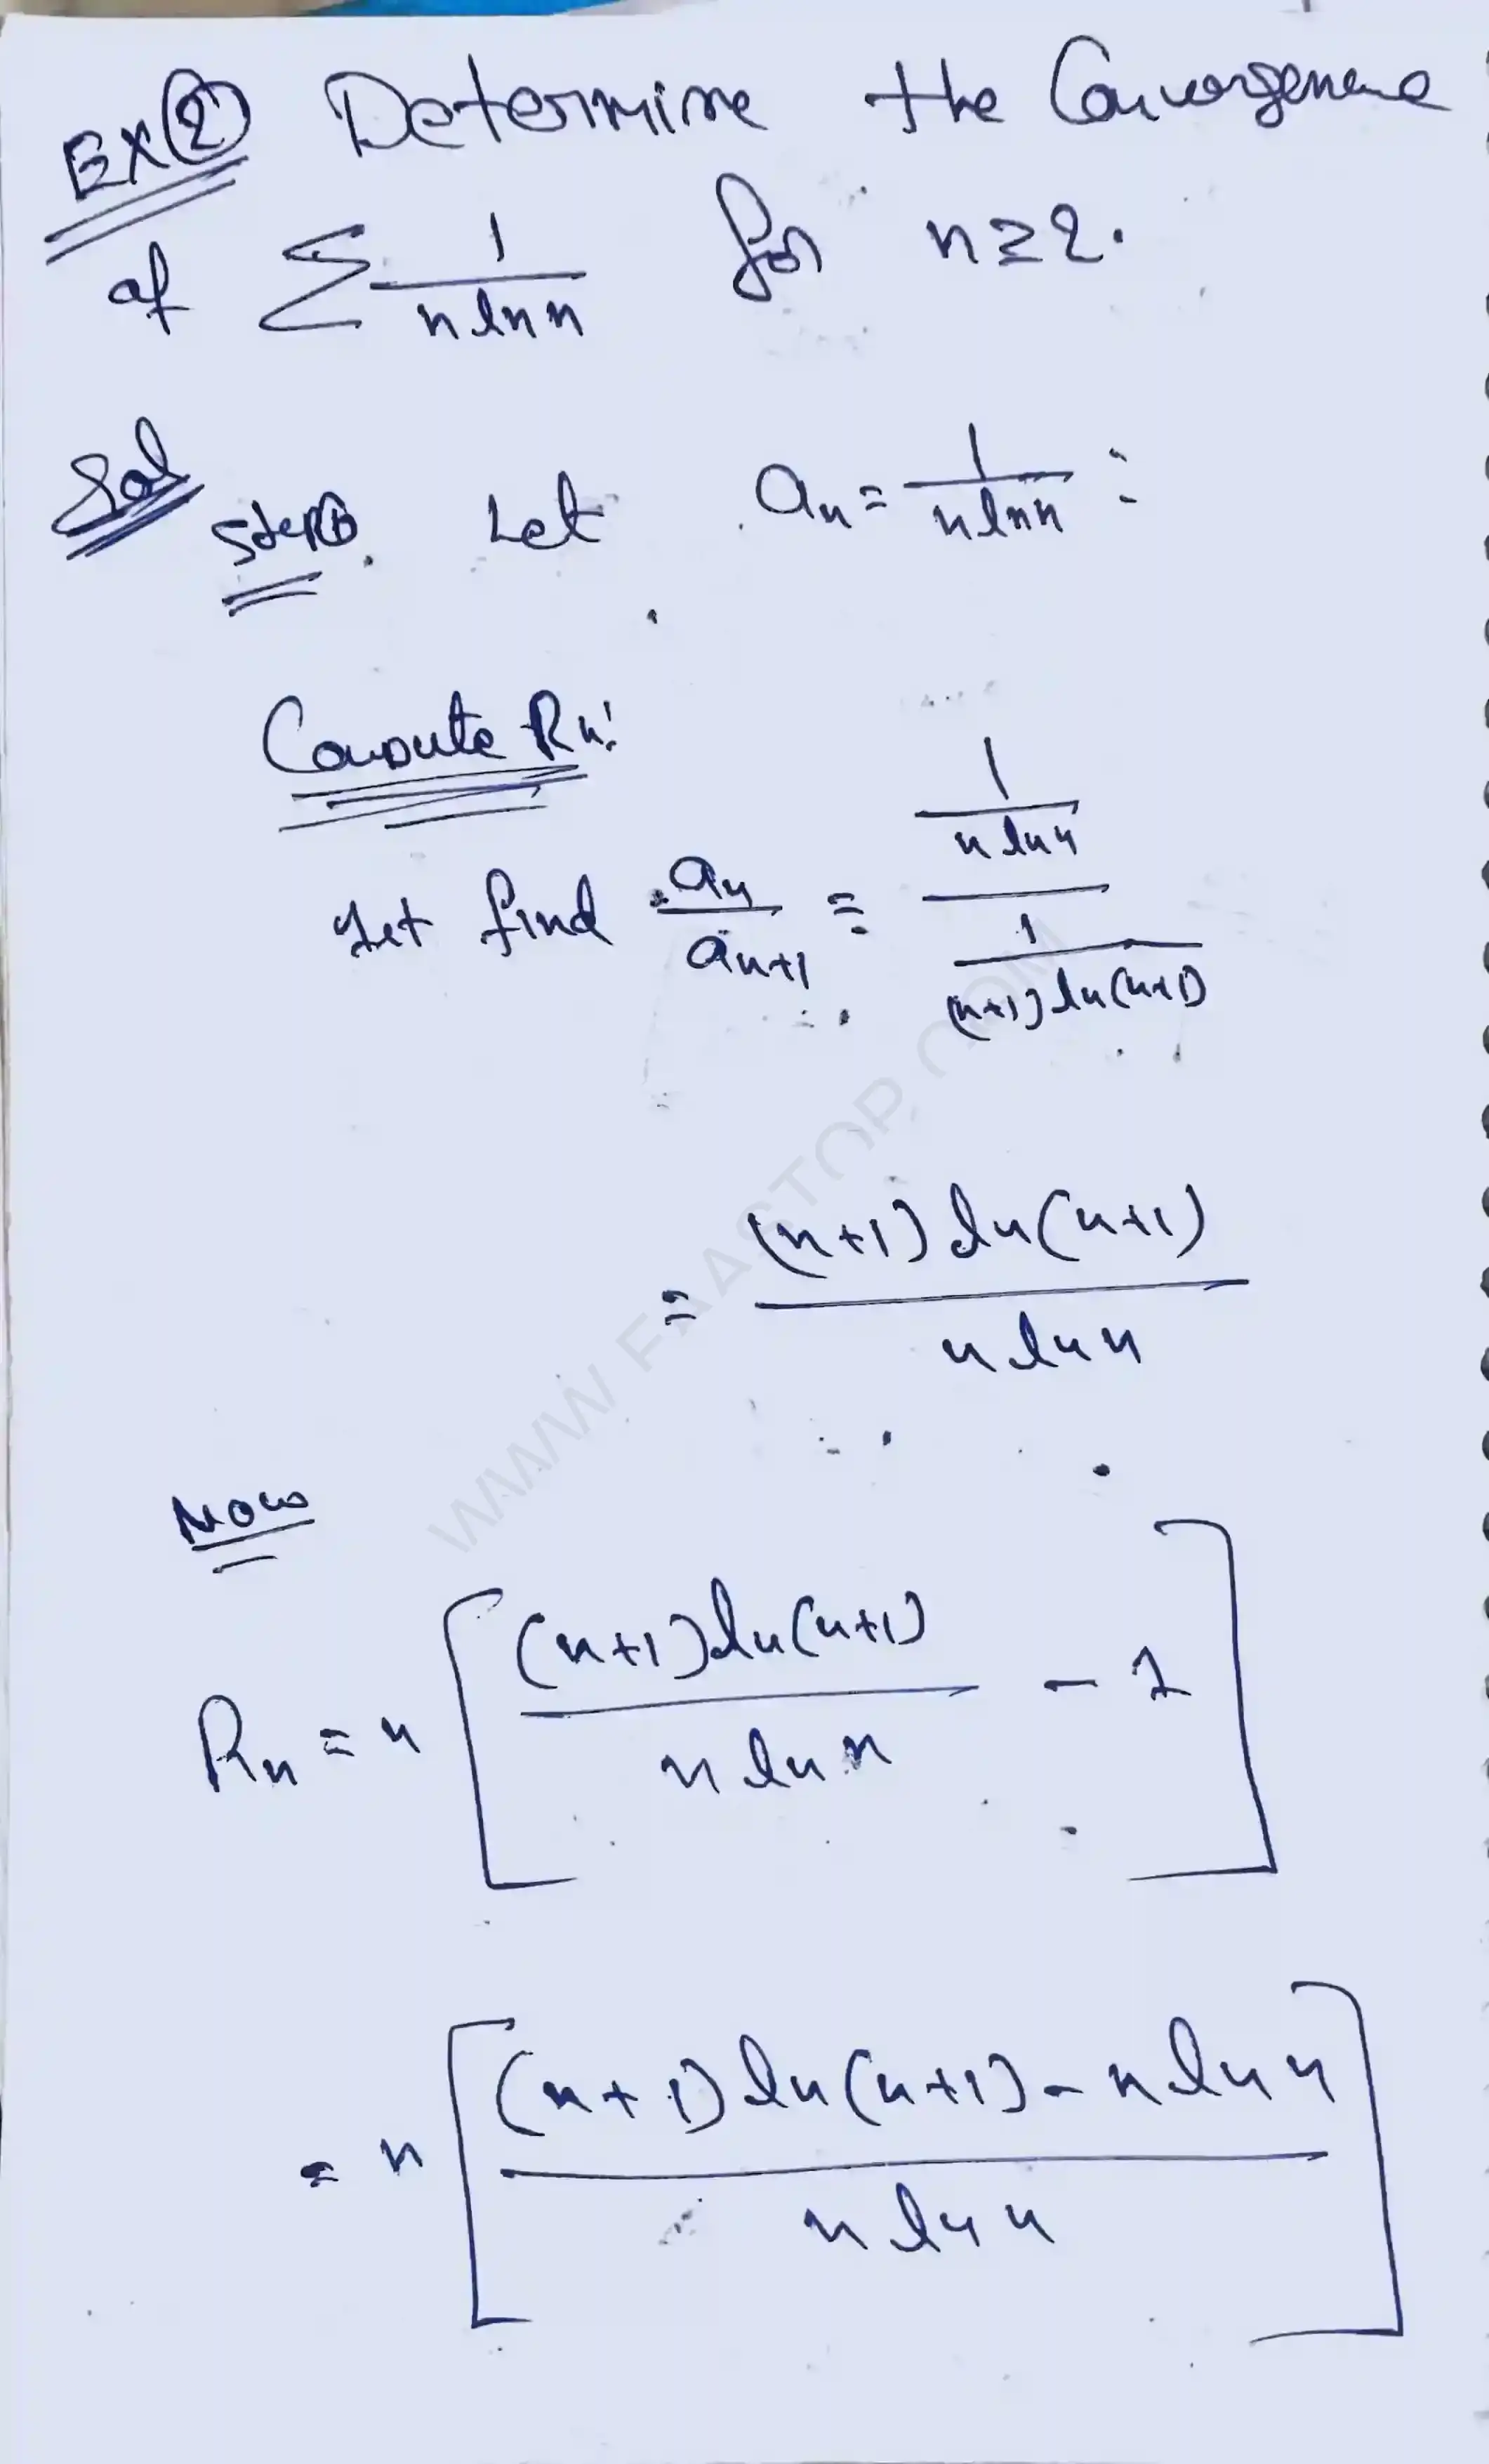 Ex(2) Determine the Convergence
of ∑ 1/(n ln n) for n≥2.
Sol
Step① Let aₙ = 1/(n ln n) :
Compute Rₙ:
Let find aₙ/aₙ₊₁ = (1/(n ln n)) / (1/((n+1) ln(n+1)))
= ((n+1) ln(n+1)) / (n ln n)
Now
Rₙ = n [ ((n+1) ln(n+1)) / (n ln n) - 1 ]
= n [ ((n+1) ln(n+1) - n ln n) / (n ln n) ]
WWW.FAASTOP.COM